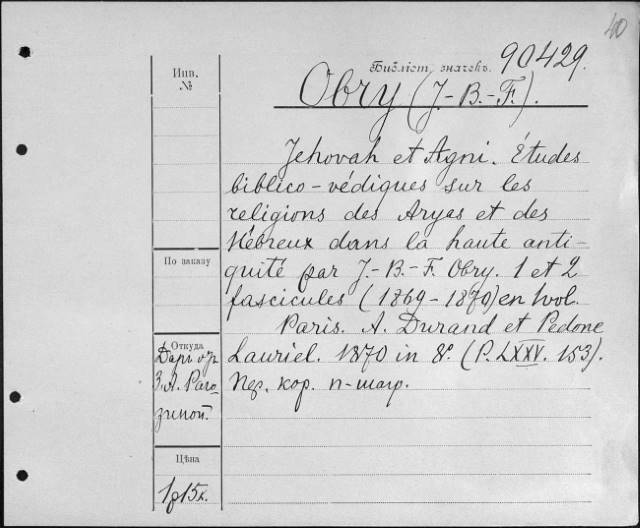 40
Библіот. значекъ. 90429.
Инв.
№
Obry (J.-B.-F.).
Jehovah et Agni. Études
biblico-védiques sur les
religions des Aryas et des
Hébreux dans la haute anti-
quité par J.-B.-F. Obry. 1 et 2
fascicules (1869-1870) en 1 vol.
Paris. A. Durand et Pedone
Lauriel. 1870 in 8º. (P. LXXV. 153).
кор. п-шагр.
По заказу
Откуда
Даръ отъ
З. А. Раго-
зиной.
Цѣна
1р 15к.